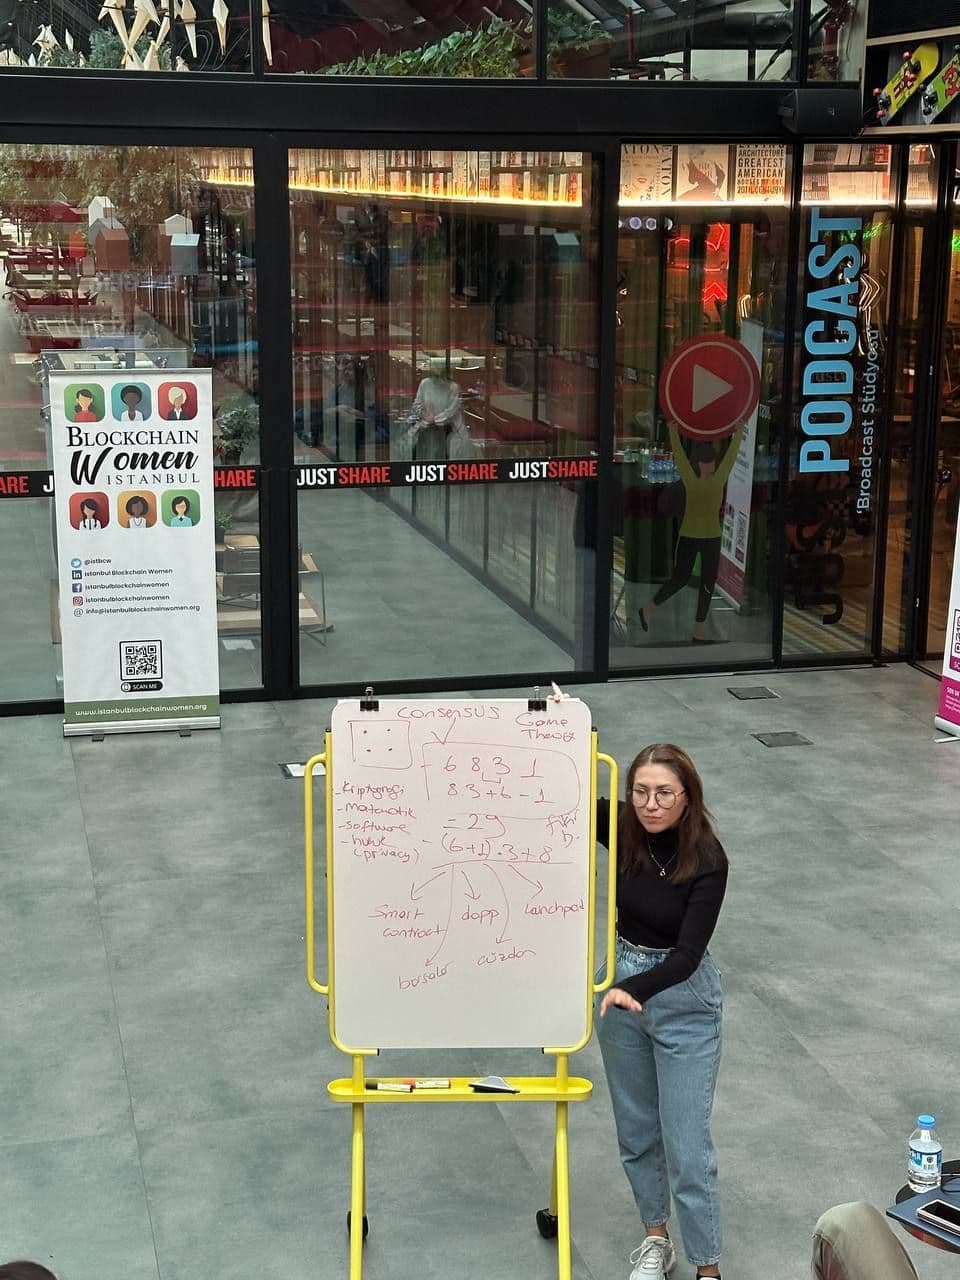 LIVING
ARCHITECTURE
GREATEST
AMERICAN
HOUSES OF THE
20TH CENTURY
PODCAST
'Broadcast Stüdyosu'
BLOCKCHAIN
Women
ISTANBUL
@istbcw
Istanbul Blockchain Women
istanbulblockchainwomen
istanbulblockchainwomen
info@istanbulblockchainwomen.org
SCAN ME
www.istanbulblockchainwomen.org
ARE
SHARE
JUSTSHARE JUSTSHARE JUSTSHARE
consensus
Game
Theory
6 8 3 1
83+6-1
- Kriptografi
- matematik
- software
- hukuk
(privacy)
= 29
- (6+1).3+8
Smart
contract
dapp
Lanchpad
borsalar
cüzdan